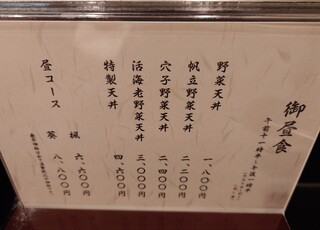 御昼食
野菜天丼 一、八〇〇円
帆立野菜天丼 二、二〇〇円
穴子野菜天丼 二、四〇〇円
活海老野菜天丼 三、〇〇〇円
特製天丼 四、六〇〇円
昼コース 楓 六、六〇〇円
葵 八、八〇〇円